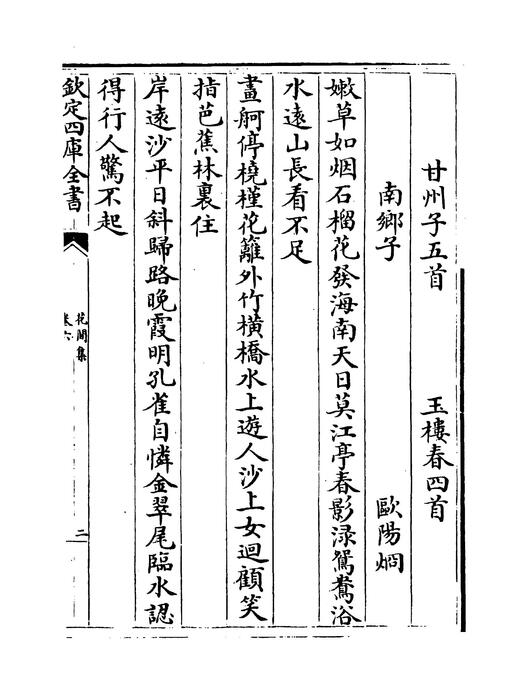 甘州子五首　玉樓春四首
南鄉子　歐陽烱
嫩草如烟石榴花發海南天日莫江亭春影渌鴛鴦浴
水遠山長看不足
畫舸停橈槿花籬外竹橫橋水上遊人沙上女迴顧笑
指芭蕉林裏住
岸遠沙平日斜歸路晚霞明孔雀自憐金翠尾臨水認
得行人驚不起
欽定四庫全書　花間集　卷六　二